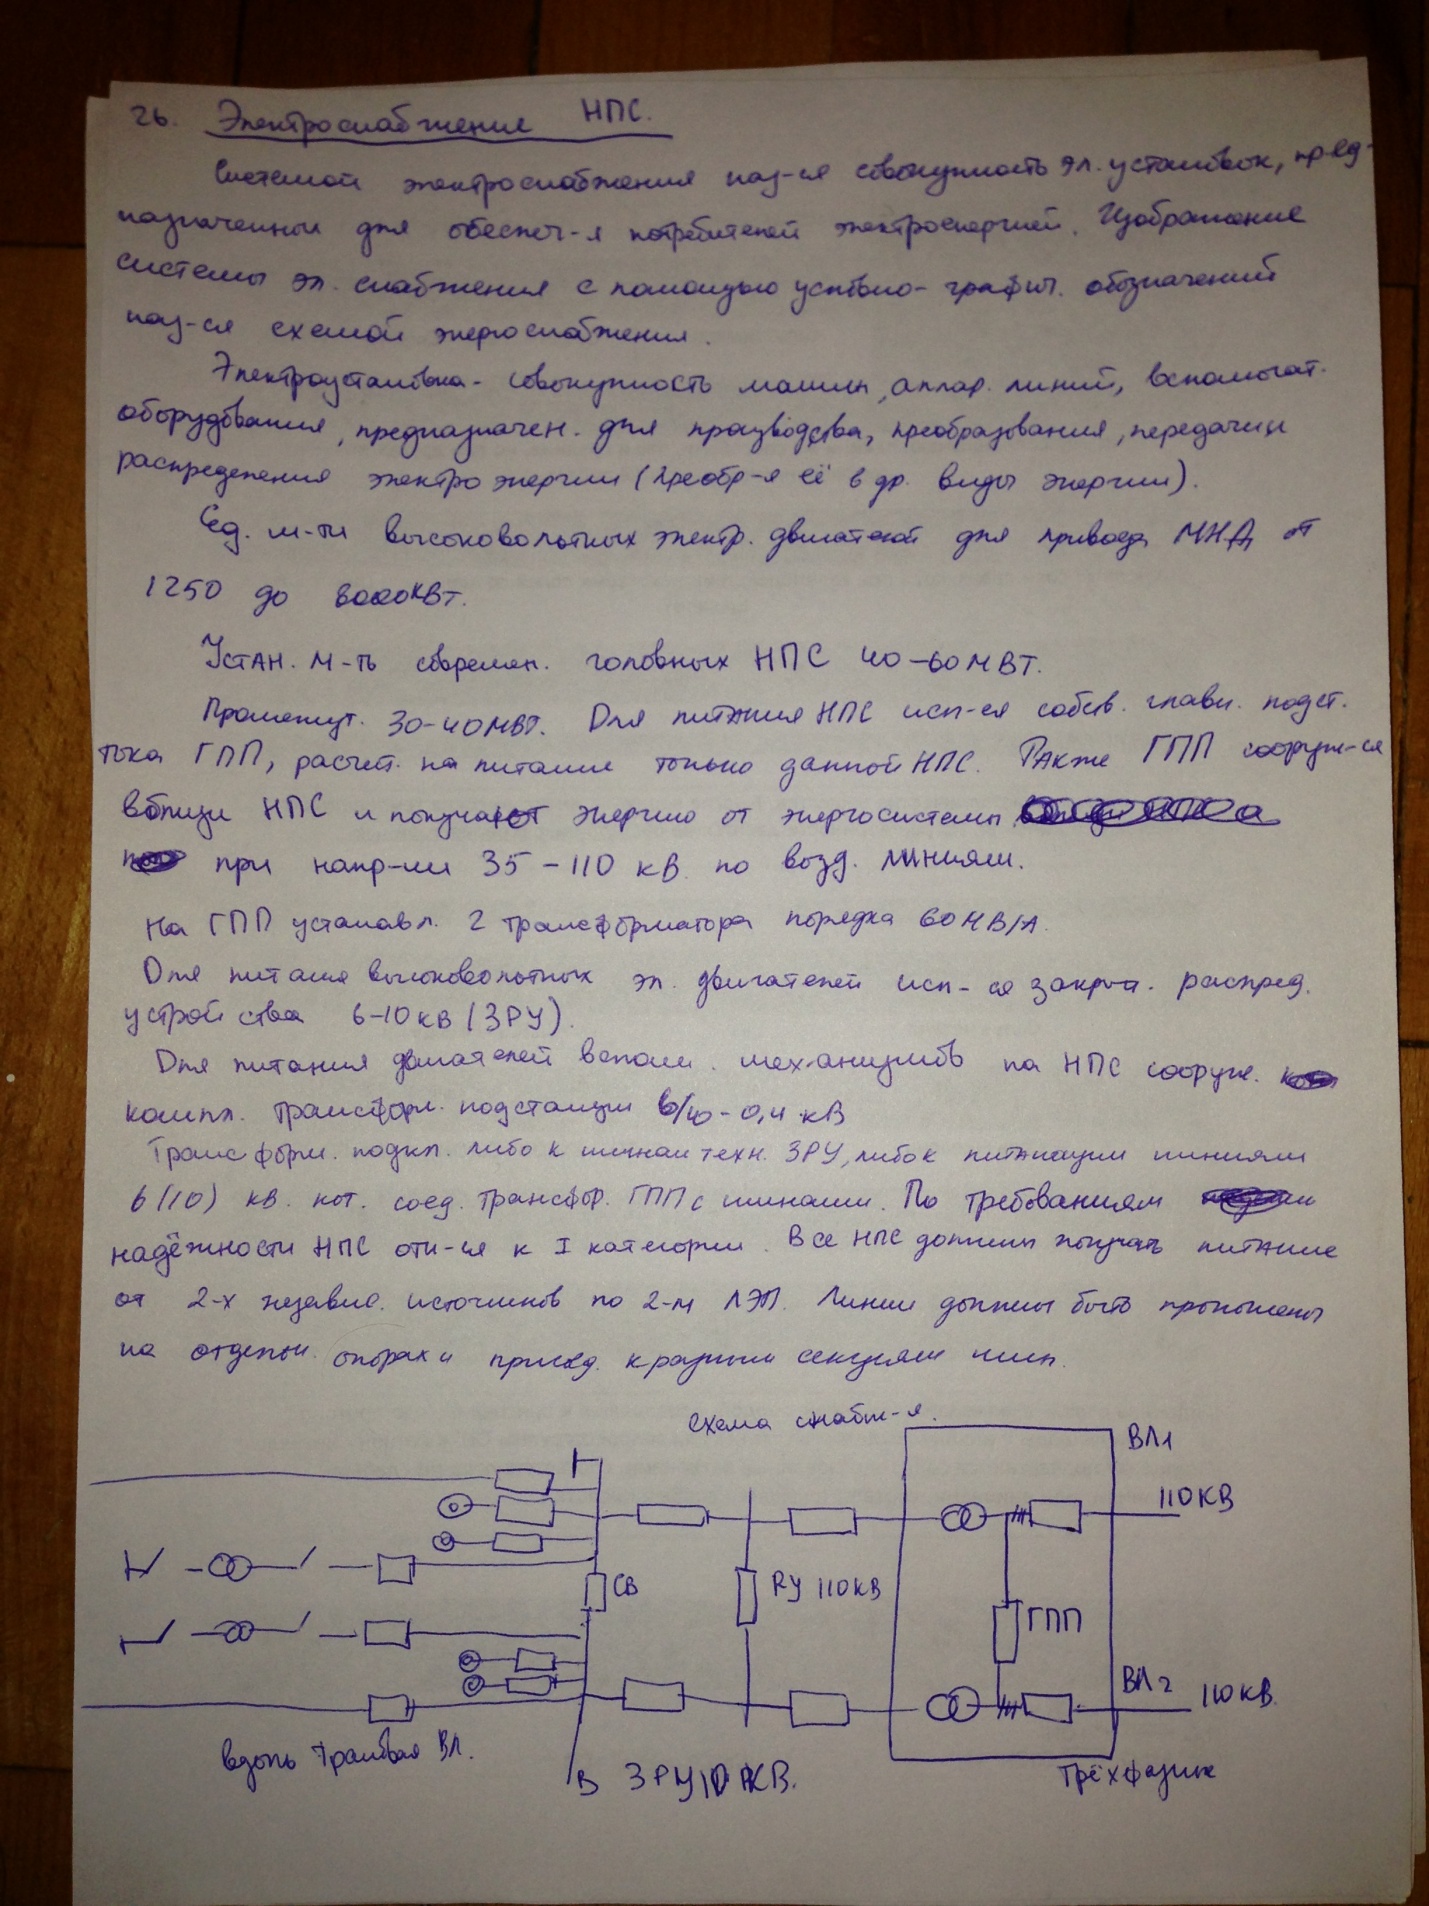 26. Электроснабжение НПС.
Системой электроснабжения наз-ся совокупность эл. установок, пред-
назначенных для обеспеч-я потребителей электроэнергией. Изображение
системы эл. снабжения с помощью условно-графич. обозначений
наз-ся схемой энергоснабжения.
Электроустановка - совокупность машин, аппар. линий, вспомогат.
оборудования, предназначен. для производства, преобразования, передачи и
распределения электроэнергии (преобр-я её в др. виды энергии).
Ед. м-ти высоковольтных электр. двигателей для привода МНА от
1250 до 8000кВт.
Устан. м-ть современ. головных НПС 40-60МВТ.
Промежут. 30-40МВТ. Для питания НПС исп-ся собств. главн. подст.
тока ГПП, расчет. на питание только данной НПС. Также ГПП сооруж-ся
вблизи НПС и получают энергию от энергосистемы
при напр-ии 35-110 кВ по возд. линиям.
На ГПП устанавл. 2 трансформатора порядка 60МВ/А.
Для питания высоковольтных эл. двигателей исп-ся закрыт. распред.
устройства 6-10кВ (ЗРУ).
Для питания двигателей вспом. механизмов на НПС сооруж.
компл. трансформ. подстанции 6/10-0,4 кВ
Трансформ. подкл. либо к шинам техн. ЗРУ, либо к питающим линиям
6(10) кВ. кот. соед. трансфор. ГПП с шинами. По требованиям
надёжности НПС отн-ся к I категории. Все НПС должны получать питание
от 2-х независ. источников по 2-м ЛЭП. Линии должны быть проложены
на отдельн. опорах и присоед. к разным секциям шин.
Схема снабж-я.
ВЛ1
110КВ
СВ
РУ 110КВ
ГПП
ВЛ2
110КВ
вдоль трассовая ВЛ.
В ЗРУ10КВ.
трёхфазные